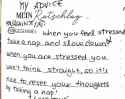 MY ADVICE
MEIN Ratschlag
when you feel stressed
take a nap and slow down
when you are stressed you
can't think straight, so it's
nice to reset your thoughts
by taking a nap!